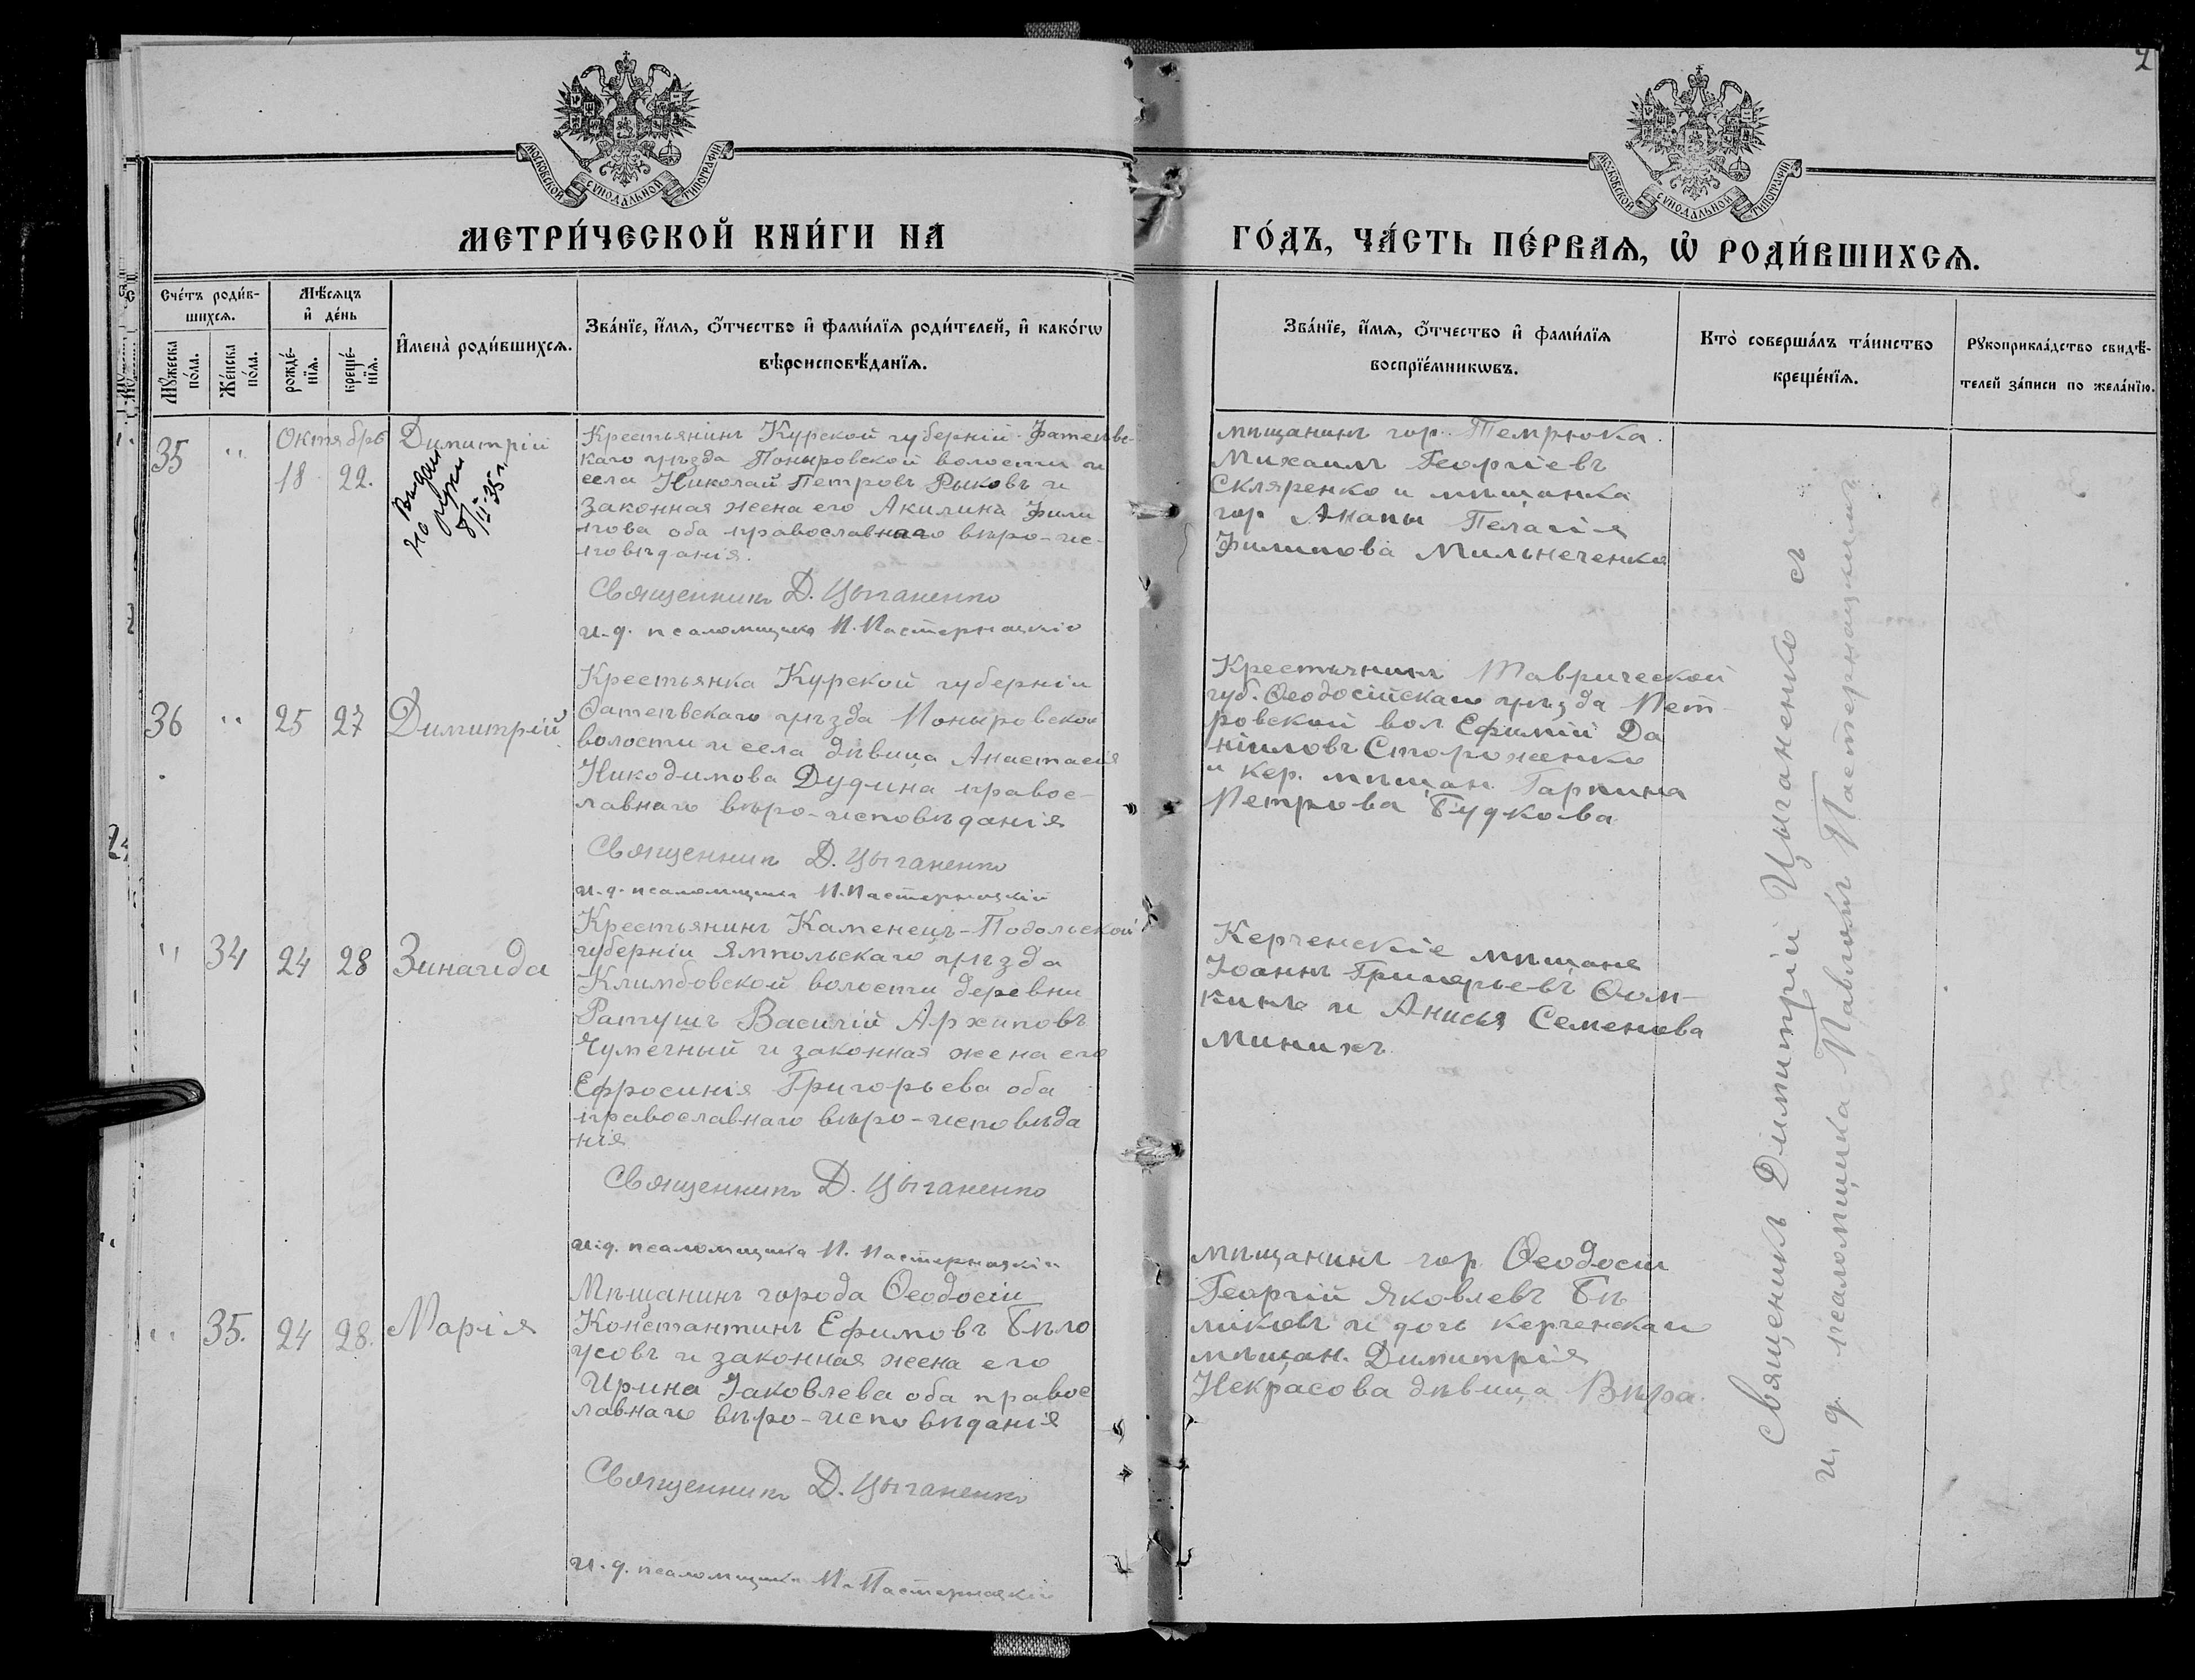 2
МОСКОВСКОЙ СѴНОДАЛЬНОЙ ТИПОГРАФІИ
МОСКОВСКОЙ СѴНОДАЛЬНОЙ ТИПОГРАФІИ
МЕТРИ́ЧЕСКОЙ КНИ́ГИ НА
ГО́ДЪ, ЧА́СТЬ ПЕ́РВАѦ, Ѡ҆ РОДИ́ВШИХСѦ.
Сче́тъ роди́в-
шихсѧ.
Мѣ́сѧцъ
и҆ де́нь
Мꙋ́жеска
по́ла.
Же́нска
по́ла.
рожде́-
нїѧ.
креще́-
нїѧ.
И҆мена̀ роди́вшихсѧ.
Зва́нїе, и҆́мѧ, ѻ҆́тчество и҆ фами́лїѧ роди́телей, и҆ како́гѡ
вѣроисповѣ́данїѧ.
Зва́нїе, и҆́мѧ, ѻ҆́тчество и҆ фами́лїѧ
воспрїе́мникѡвъ.
Кто̀ соверша́лъ та́инство
креще́нїѧ.
Рꙋкоприкла́дство свидѣ́-
телей за́писи по жела́нїю.
35 " Октябрь Димитрій
18 22.
Выдан
на руки
8/II 35 г.
Крестьянинъ Курской губерніи Фатежс-
каго уѣзда Поныровской волости и
села Николай Петровъ Рыковъ и
законная жена его Акилина Фили
пова оба православнаго вѣро-ис-
повѣданія.
Священникъ Д. Цыганенко
и. д. псаломщика П. Пастернацкій
мѣщанинъ гор. Темрюка
Михаилъ Георгіевъ
Скляренко и мѣщанка
гор Анапы Пелагія
Филипова Мильнеченко
36 " 25 27 Димитрій
Крестьянка Курской губерніи
Фатежскаго уѣзда Поныровской
волости и села дѣвица Анастасія
Никодимова Дудина правос-
лавнаго вѣро-исповѣданія
Священникъ Д. Цыганенко
и. д. псаломщика П. Пастернацкій
Крестьянинъ Таврической
губ. Ѳеодосійскаго уѣзда Пет-
ровской вол Ефимій Да
ніиловъ Стороженко
и кер. мѣщан. Гарпина
Петрова Будкова
" 34 24 28 Зинаида
Крестьянинъ Каменецъ-Подольской
губерніи Ямпольскаго уѣзда
Климбовской волости деревни
Ратушъ Василій Архиповъ
и законная жена его
Ефросинія Григорьева оба
православнаго вѣро-исповѣда
нія
Священникъ Д. Цыганенко
и. д. псаломщика П. Пастернацкій
Керченскіе мѣщане
Іоаннъ Григорьевъ Ѳом-
кинъ и Анисья Семенова
Минихъ
" 35. 24 28. Марія
Мѣщанинъ города Ѳеодосіи
Константинъ Ефимовъ Бѣло
усовъ и законная жена его
Ирина Іаковлева оба правос
лавнаго вѣро-исповѣданія
Священникъ Д. Цыганенко
и. д. псаломщика П. Пастернацкій
мѣщанинъ гор. Ѳеодосіи
Георгій Яковлевъ Бѣ
ликовъ и дочь керченскаго
мѣщан. Димитрія
Некрасова дѣвица Вѣра.
Священникъ Димитрій Цыганенко съ
и. д. псаломщика Павломъ Пастернацкимъ